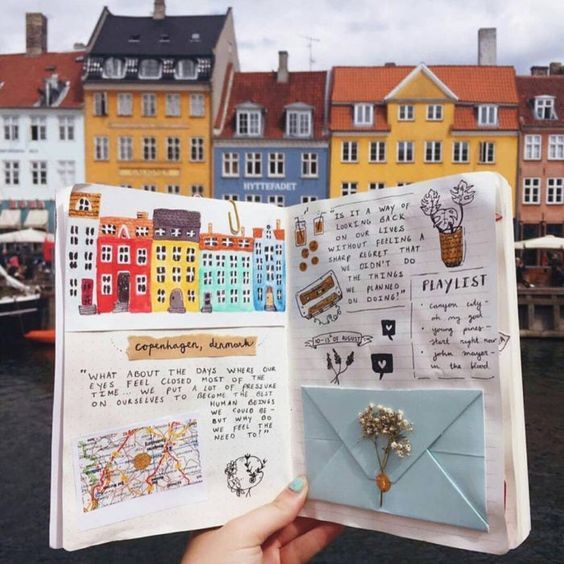 HYTTEFADET
copenhagen, denmark
"WHAT ABOUT THE DAYS WHERE OUR
EYES FEEL CLOSED MOST OF THE
TIME... WE PUT A LOT OF PRESSURE
ON OURSELVES TO BECOME THE BEST
HUMAN BEINGS
WE COULD BE-
BUT WHY DO
WE FEEL THE
NEED TO?"
"IS IT A WAY OF
LOOKING BACK
ON OUR LIVES
WITHOUT FEELING A
SHARP REGRET THAT
WE DIDN'T DO
THE THINGS
WE PLANNED
ON DOING!"
10-15 OF AUGUST
PLAYLIST
- canyon city-
oh my god
- young pines-
start right now
- john mayer-
in the blood